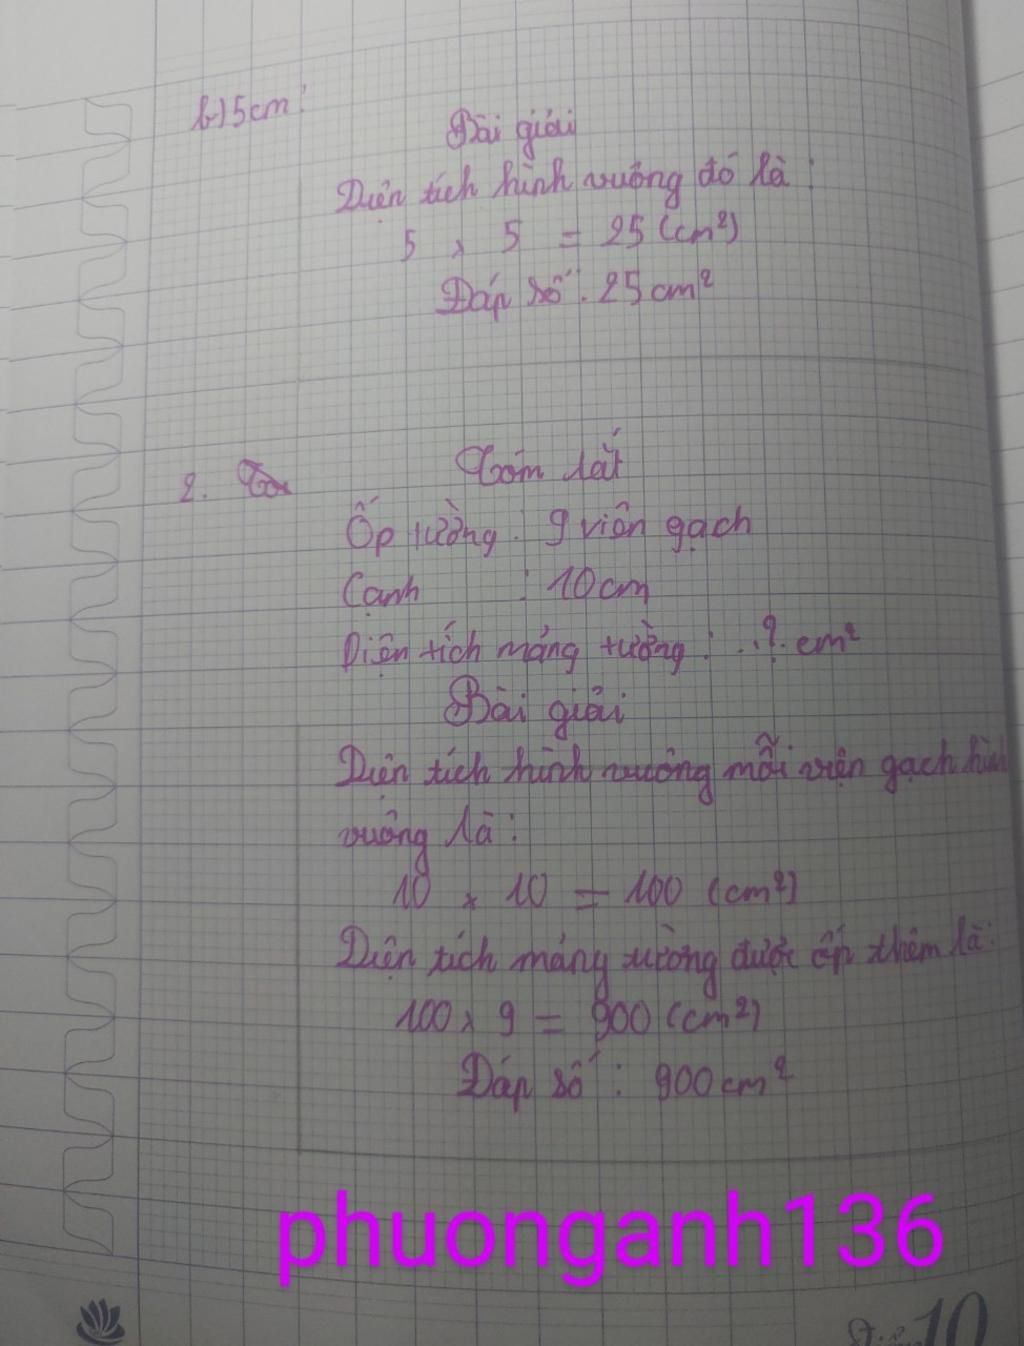 b) 5cm:
Bài giải
Diện tích hình vuông đó là:
5 x 5 = 25 (cm²)
Đáp số: 25 cm²
2. Tóm tắt
Ốp tường: 9 viên gạch
Cạnh : 10cm
Diện tích mảng tường: ..?. cm²
Bài giải
Diện tích hình vuông mỗi viên gạch hình
vuông là:
10 x 10 = 100 (cm²)
Diện tích mảng tường được ốp thêm là:
100 x 9 = 900 (cm²)
Đáp số: 900 cm²
phuonganh136
10